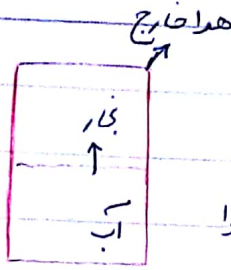 هوا خارج
بخار
آب